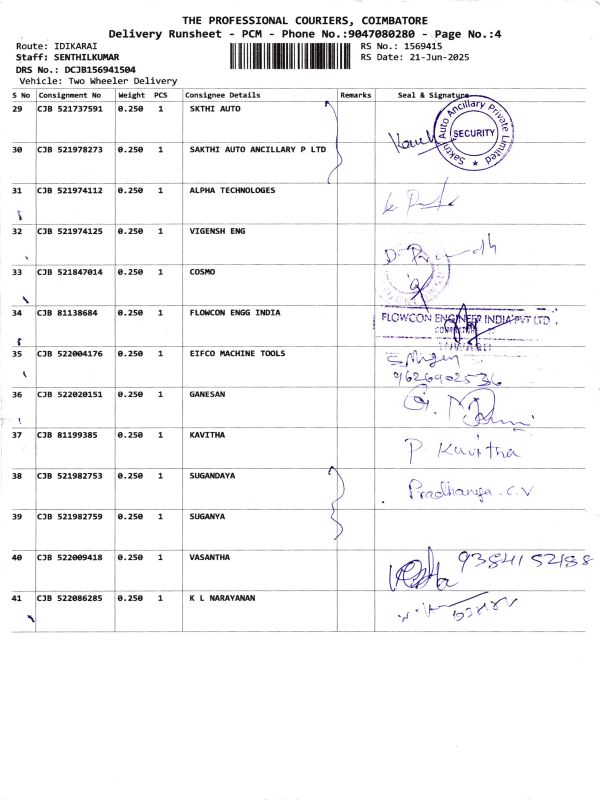 THE PROFESSIONAL COURIERS, COIMBATORE
Delivery Runsheet - PCM - Phone No.:9047080280 - Page No.:4
Route: IDIKARAI
RS No.: 1569415
Staff: SENTHILKUMAR
RS Date: 21-Jun-2025
DRS No.: DCJB156941504
Vehicle: Two Wheeler Delivery
S No Consignment No Weight PCS Consignee Details Remarks Seal & Signature
29 CJB 521737591 0.250 1 SKTHI AUTO
Sakthi Auto Ancillary Private Limited
SECURITY
30 CJB 521978273 0.250 1 SAKTHI AUTO ANCILLARY P LTD
31 CJB 521974112 0.250 1 ALPHA TECHNOLOGES
32 CJB 521974125 0.250 1 VIGENSH ENG
33 CJB 521847014 0.250 1 COSMO
34 CJB 81138684 0.250 1 FLOWCON ENGG INDIA
FLOWCON ENGINEER INDIA PVT LTD
35 CJB 522004176 0.250 1 EIFCO MACHINE TOOLS
9626902536
36 CJB 522020151 0.250 1 GANESAN
37 CJB 81199385 0.250 1 KAVITHA P Kavitha
38 CJB 521982753 0.250 1 SUGANDAYA Pradhanya. C.V
39 CJB 521982759 0.250 1 SUGANYA
40 CJB 522009418 0.250 1 VASANTHA 9384152188
41 CJB 522086285 0.250 1 K L NARAYANAN